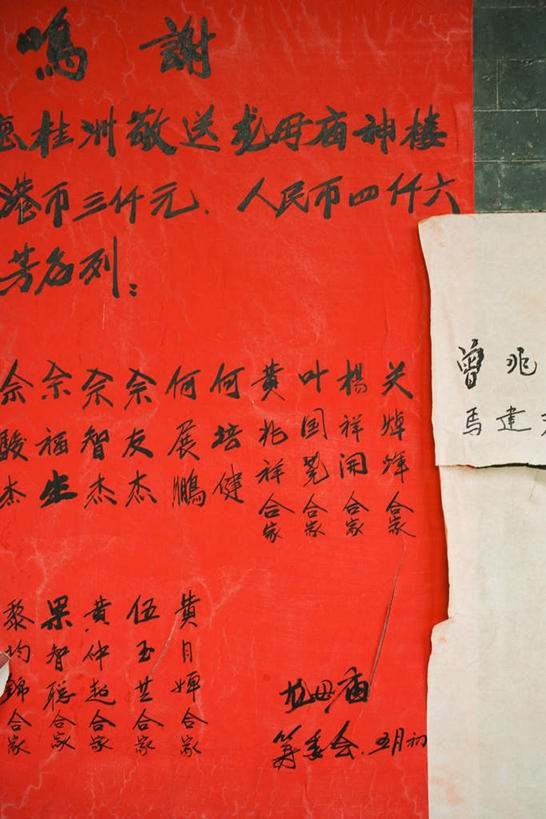 鳴 謝
桂洲敬送龙母庙神楼
港币三仟元、人民币四仟六
芳名列：
关焯辉合家
楊祥開合家
叶国尧合家
黄兆祥合家
何培健
何展鵬
佘友杰
佘智杰
佘福生
佘駿杰
黄月婵合家
伍玉芝合家
黄仲超合家
果智聪合家
黎均錦合家
龙母庙
筹委会.五月初
曾兆
馬建